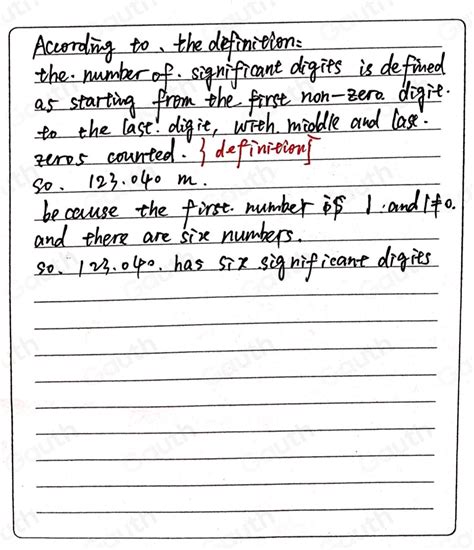 According to, the definition:
the. number of. significant digits is defined
as starting from the first non-zero digit.
to the last. digit, with middle and last.
zeros counted. } definition
so. 123.040 m.
because the first. number is 1. and 1≠0.
and there are six numbers.
so. 123.040. has six significant digits